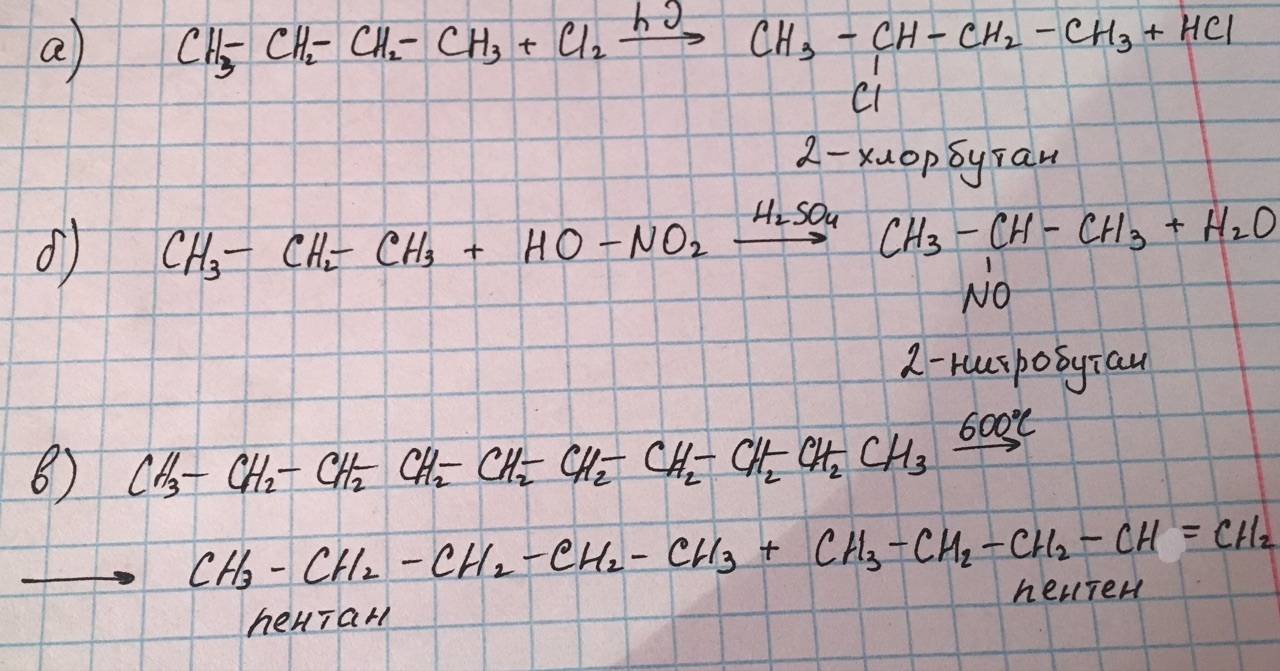 а) CH₃- CH₂- CH₂- CH₃ + Cl₂ —hυ→ CH₃ - CH - CH₂ - CH₃ + HCl
Cl
2-хлорбутан
б) CH₃- CH₂- CH₃ + HO - NO₂ —H₂SO₄→ CH₃ - CH - CH₃ + H₂O
NO
2-нитробутан
в) CH₃- CH₂- CH₂- CH₂- CH₂- CH₂- CH₂- CH₂ CH₂ CH₃ —600°C→
→ CH₃ - CH₂ - CH₂ - CH₂ - CH₃ + CH₃ - CH₂ - CH₂ - CH = CH₂
пентан пентен